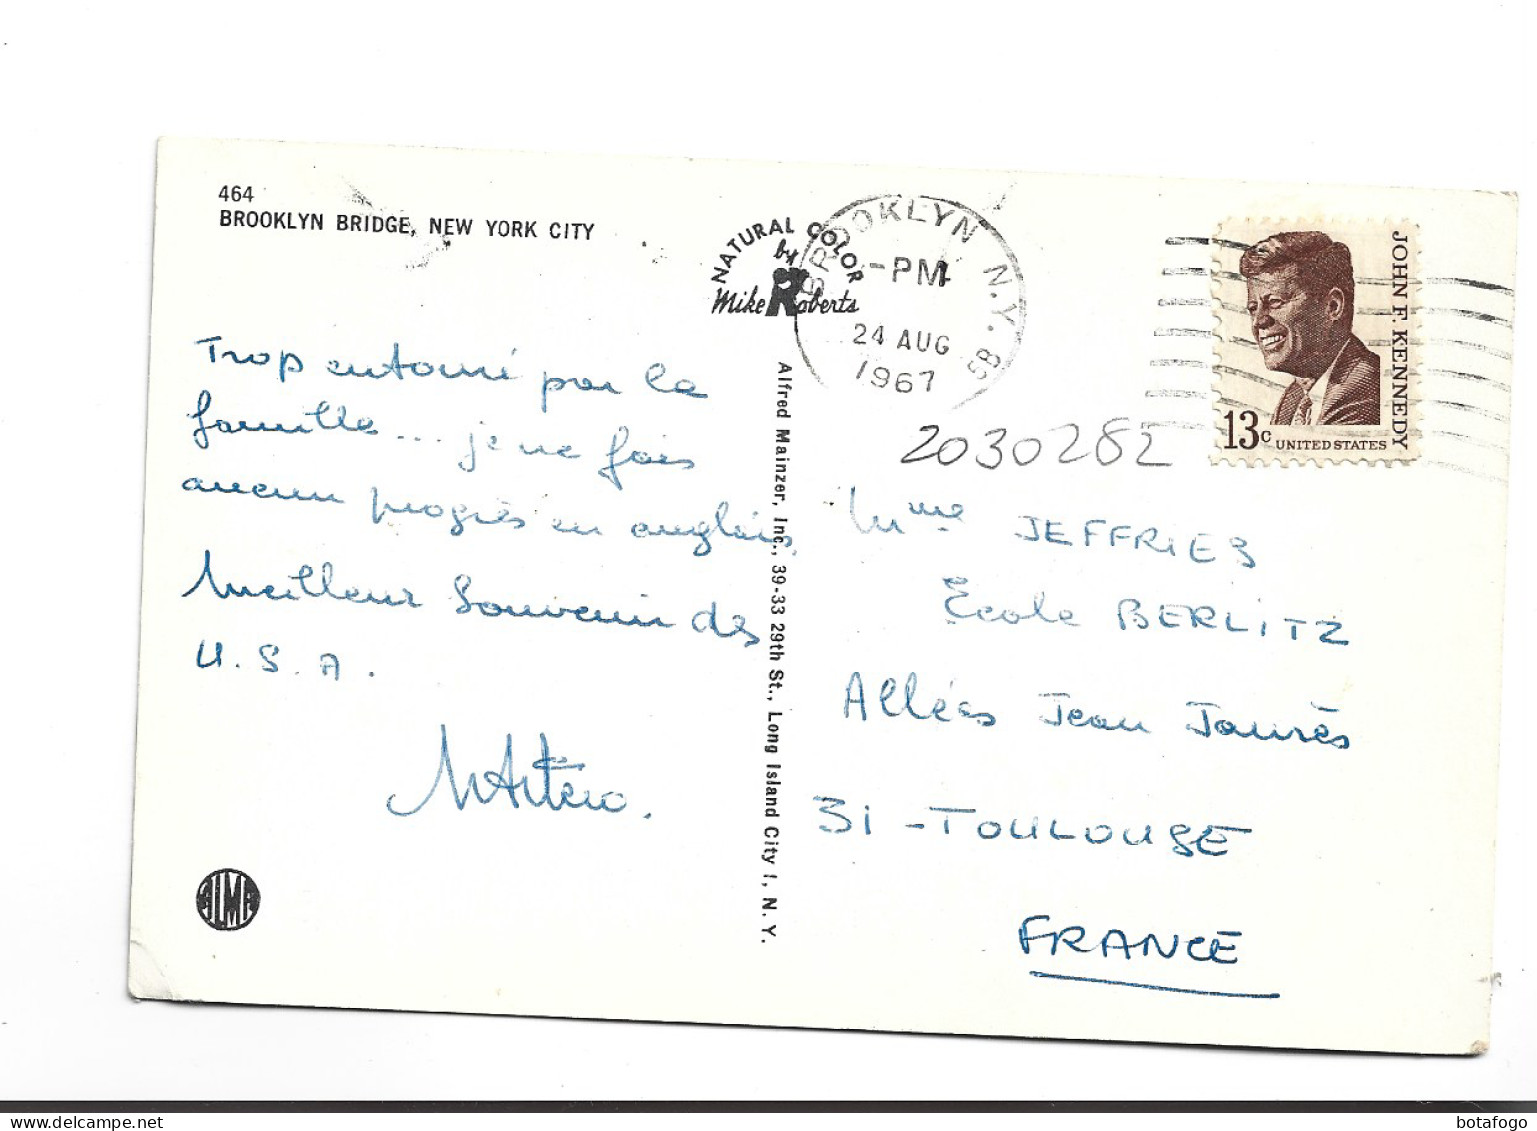 464
BROOKLYN BRIDGE, NEW YORK CITY
NATURAL COLOR
by
Mike Roberts
BROOKLYN N.Y.
-PM
24 AUG
1967
JOHN F. KENNEDY
13c UNITED STATES
2030282
Trop entouré par la
famille... je ne fais
aucun progrès en anglais.
Meilleur Souvenir des
U.S.A.
Alfred Mainzer, Inc., 39-33 29th St., Long Island City 1, N. Y.
Mme JEFFRIES
École BERLITZ
Allées Jean Jaurès
31 - TOULOUSE
FRANCE
ALMA
botafogo